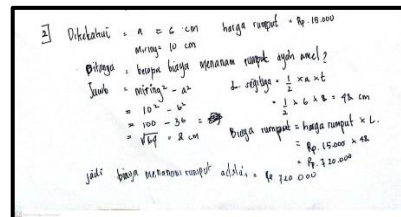 2] Diketahui = a = 6 cm harga rumput = Rp. 15.000
Miring = 10 cm
Ditanya = berapa biaya menanam rumput ayah amel?
Jawab = miring² - a²
= 10² - 6²
= 100 - 36 =
= √64 = 8 cm
L. segitiga = 1/2 x a x t
= 1/2 x 6 x 8 = 48 cm
Biaya rumput = harga rumput x L.
= Rp. 15.000 x 48
= Rp. 720.000
jadi biaya menanam rumput adalah = Rp 720.000